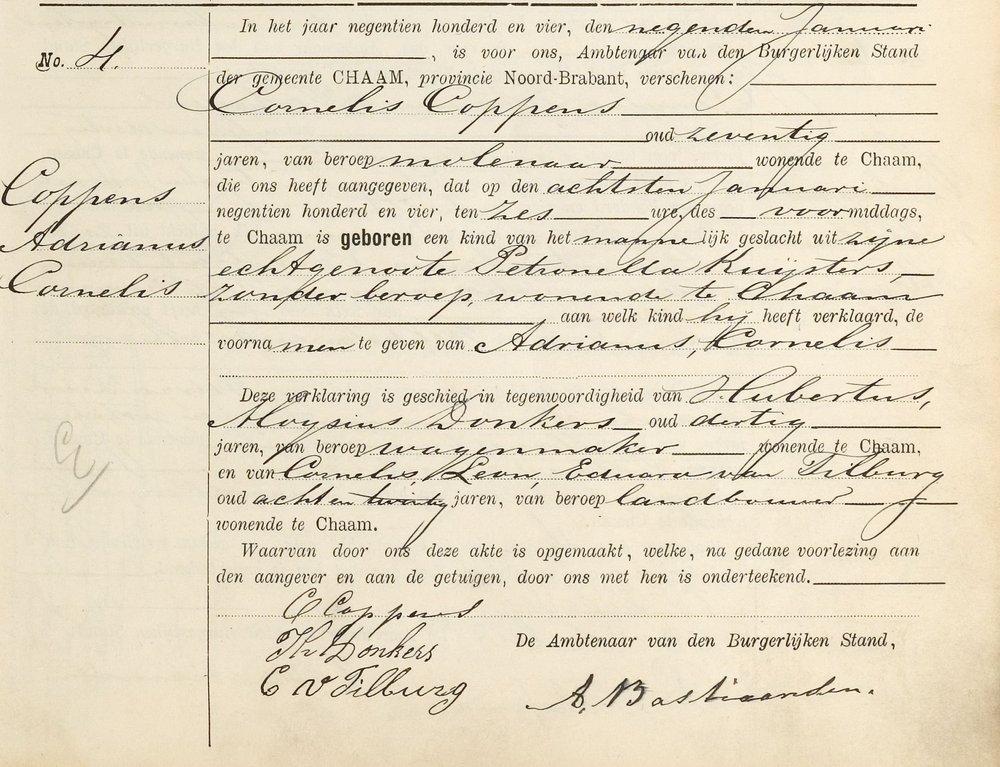 No. 4.
In het jaar negentien honderd en vier, den negenden Januari
, is voor ons, Ambtenaar van den Burgerlijken Stand
der gemeente CHAAM, provincie Noord-Brabant, verschenen:
Cornelis Coppens
oud zeventig
jaren, van beroep molenaar wonende te Chaam,
die ons heeft aangegeven, dat op den achtsten Januari
negentien honderd en vier, ten zes ure, des voormiddags,
te Chaam is geboren een kind van het mannelijk geslacht uit zijne
echtgenoote Petronella Kuijsters,
zonder beroep, wonende te Chaam
aan welk kind hij heeft verklaard, de
voornamen te geven van Adrianus, Cornelis
Coppens
Adrianus
Cornelis
Deze verklaring is geschied in tegenwoordigheid van Hubertus,
Aloysius Donkers oud dertig
jaren, van beroep wagenmaker wonende te Chaam,
en van Cornelis, Leon, Eduard van Tilburg
oud acht en twintig jaren, van beroep landbouwer
wonende te Chaam.
Waarvan door ons deze akte is opgemaakt, welke, na gedane voorlezing aan
den aangever en aan de getuigen, door ons met hen is onderteekend.
C Coppens
Donkers
C v Tilburg
De Ambtenaar van den Burgerlijken Stand,